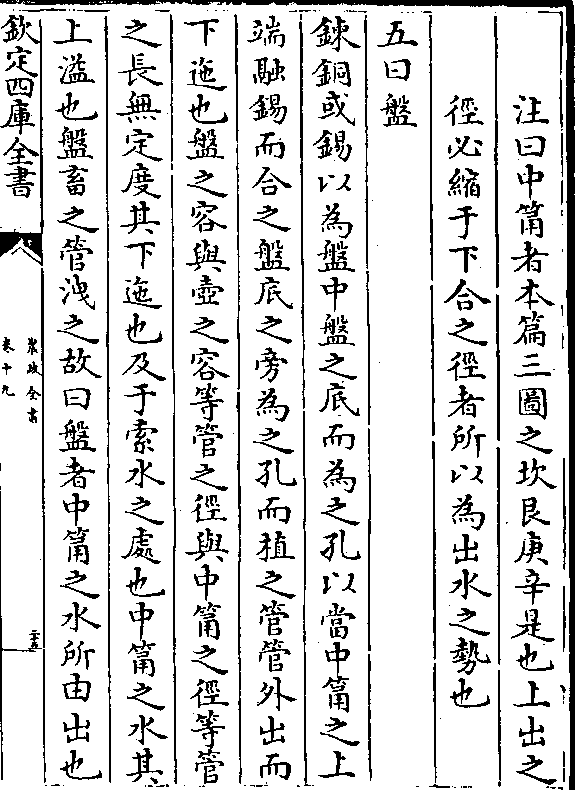 注曰中筩者本篇三圖之坎艮庚辛是也上出之
徑必縮于下合之徑者所以為出水之勢也
五曰盤
鍊銅或錫以為盤中盤之底而為之孔以當中筩之上
端融錫而合之盤底之旁為之孔而植之管管外出而
下迤也盤之容與壺之容等管之徑與中筩之徑等管
之長無定度其下迤也及于索水之處也中筩之水其
上溢也盤畜之管洩之故曰盤者中筩之水所由出也
欽定四庫全書
農政全書
卷十九
二十五